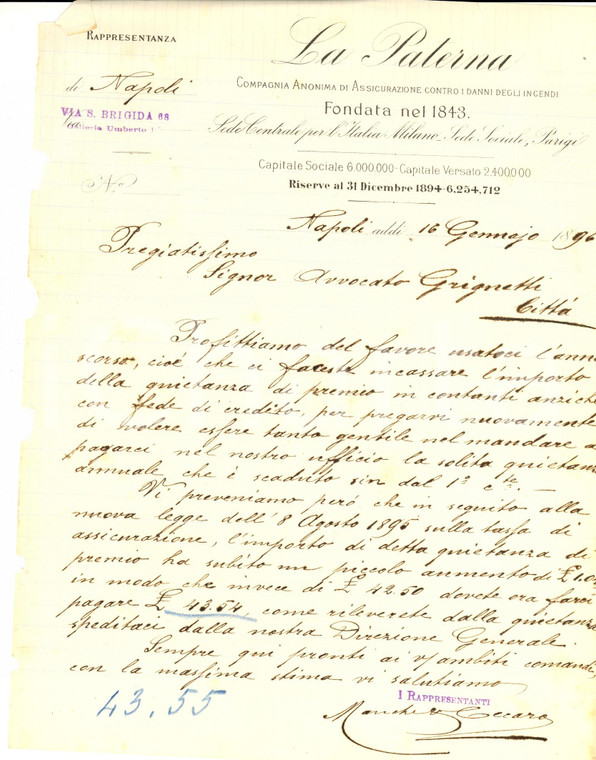 RAPPRESENTANZA
di Napoli
VIA S. BRIGIDA 68
Galleria Umberto I
No
La Paterna
COMPAGNIA ANONIMA DI ASSICURAZIONE CONTRO I DANNI DEGLI INCENDI
Fondata nel 1843.
Sede Centrale per l'Italia Milano, Sede Sociale, Parigi
Capitale Sociale 6.000.000 - Capitale Versato 2.400.000
Riserve al 31 Dicembre 1894 - 6.254.712
Napoli addì 16 Gennajo 1896
Pregiatissimo
Signor Avvocato Grignetti
Città
Profittiamo del favore usatoci l'anno
scorso, cioè che ci faceste incassare l'importo
della quietanza di premio in contanti anziché
con fede di credito, per pregarvi nuovamente
di volere essere tanto gentile nel mandare a
pagarci nel nostro ufficio la solita quietanza
annuale che è scaduto sin dal 1° c.te.—
Vi preveniamo però che in seguito alla
nuova legge dell'8 Agosto 1895 sulla tassa di
assicurazione, l'importo di detta quietanza di
premio ha subìto un piccolo aumento di £ 1.0
in modo che invece di £ 42.50 dovete ora farci
pagare £ 43.54, come rileverete dalla quietanza
speditaci dalla nostra Direzione Generale.
Sempre qui pronti ai v/ ambiti comandi,
con la massima stima vi salutiamo
43.55
I RAPPRESENTANTI